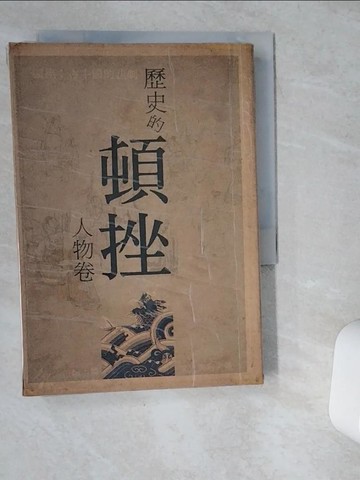 歷史的
頓挫
人物卷